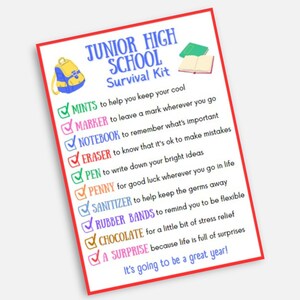 JUNIOR HIGH
SCHOOL
Survival Kit
MINTS to help you keep your cool
MARKER to leave a mark wherever you go
NOTEBOOK to remember what's important
ERASER to know that it's ok to make mistakes
PEN to write down your bright ideas
PENNY for good luck wherever you go in life
SANITIZER to help keep the germs away
RUBBER BANDS to remind you to be flexible
CHOCOLATE for a little bit of stress relief
A SURPRISE because life is full of surprises
It's going to be a great year!